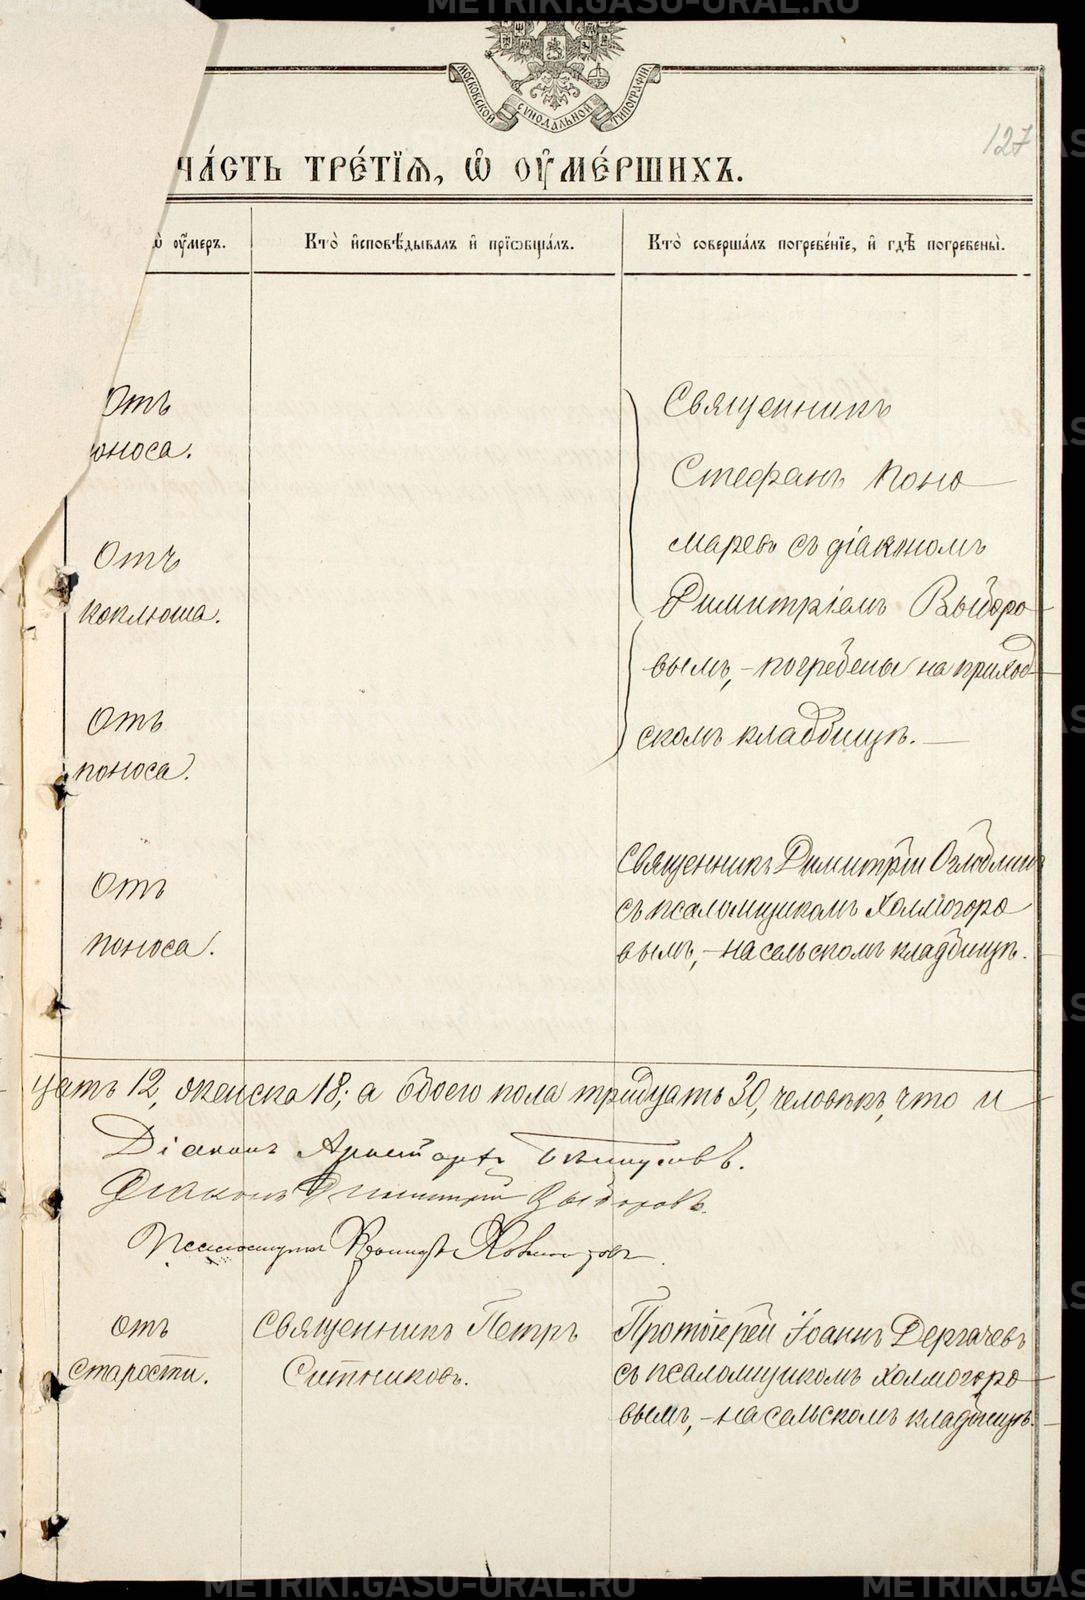 METRIKI.GASU-URAL.RU
МОСКОВСКОЙ СѴНОДАЛЬНОЙ ТИПОГРАФІИ
127
ЧА́СТЬ ТРЕ́ТЇѦ, Ѡ҆ ОУ҆МЕ́РШИХЪ.
оу҆́меръ.
Кто̀ и҆сповѣ́дывалъ и҆ прїѡбща́лъ.
Кто̀ соверша́лъ погребе́нїе, и҆ гдѣ̀ погребены̀.
Отъ
оноса.
Священникъ
Стефанъ Поно
маревъ съ діакономъ
Димитріемъ Выборо
вымъ,- погребены на приход
скомъ кладбищѣ.
Отъ
коклюша.
Отъ
поноса.
Отъ
поноса.
Священникъ Димитрій Оглоблинъ
съ псаломщикомъ Холмогоро
вымъ,- на сельскомъ кладбищѣ.
цать 12, женска 18; а обоего пола тридцать 30, человѣкъ, что и
Діаконъ Аристархъ
Діаконъ Димитрій Выборовъ.
Псаломщикъ Холмогоровъ.
отъ
старости.
Священникъ Петръ
Ситниковъ.
Протоіерей Іоаннъ Дергачевъ
съ псаломщикомъ Холмогоро
вымъ,- на сельскомъ кладбищѣ.
METRIKI.GASU-URAL.RU